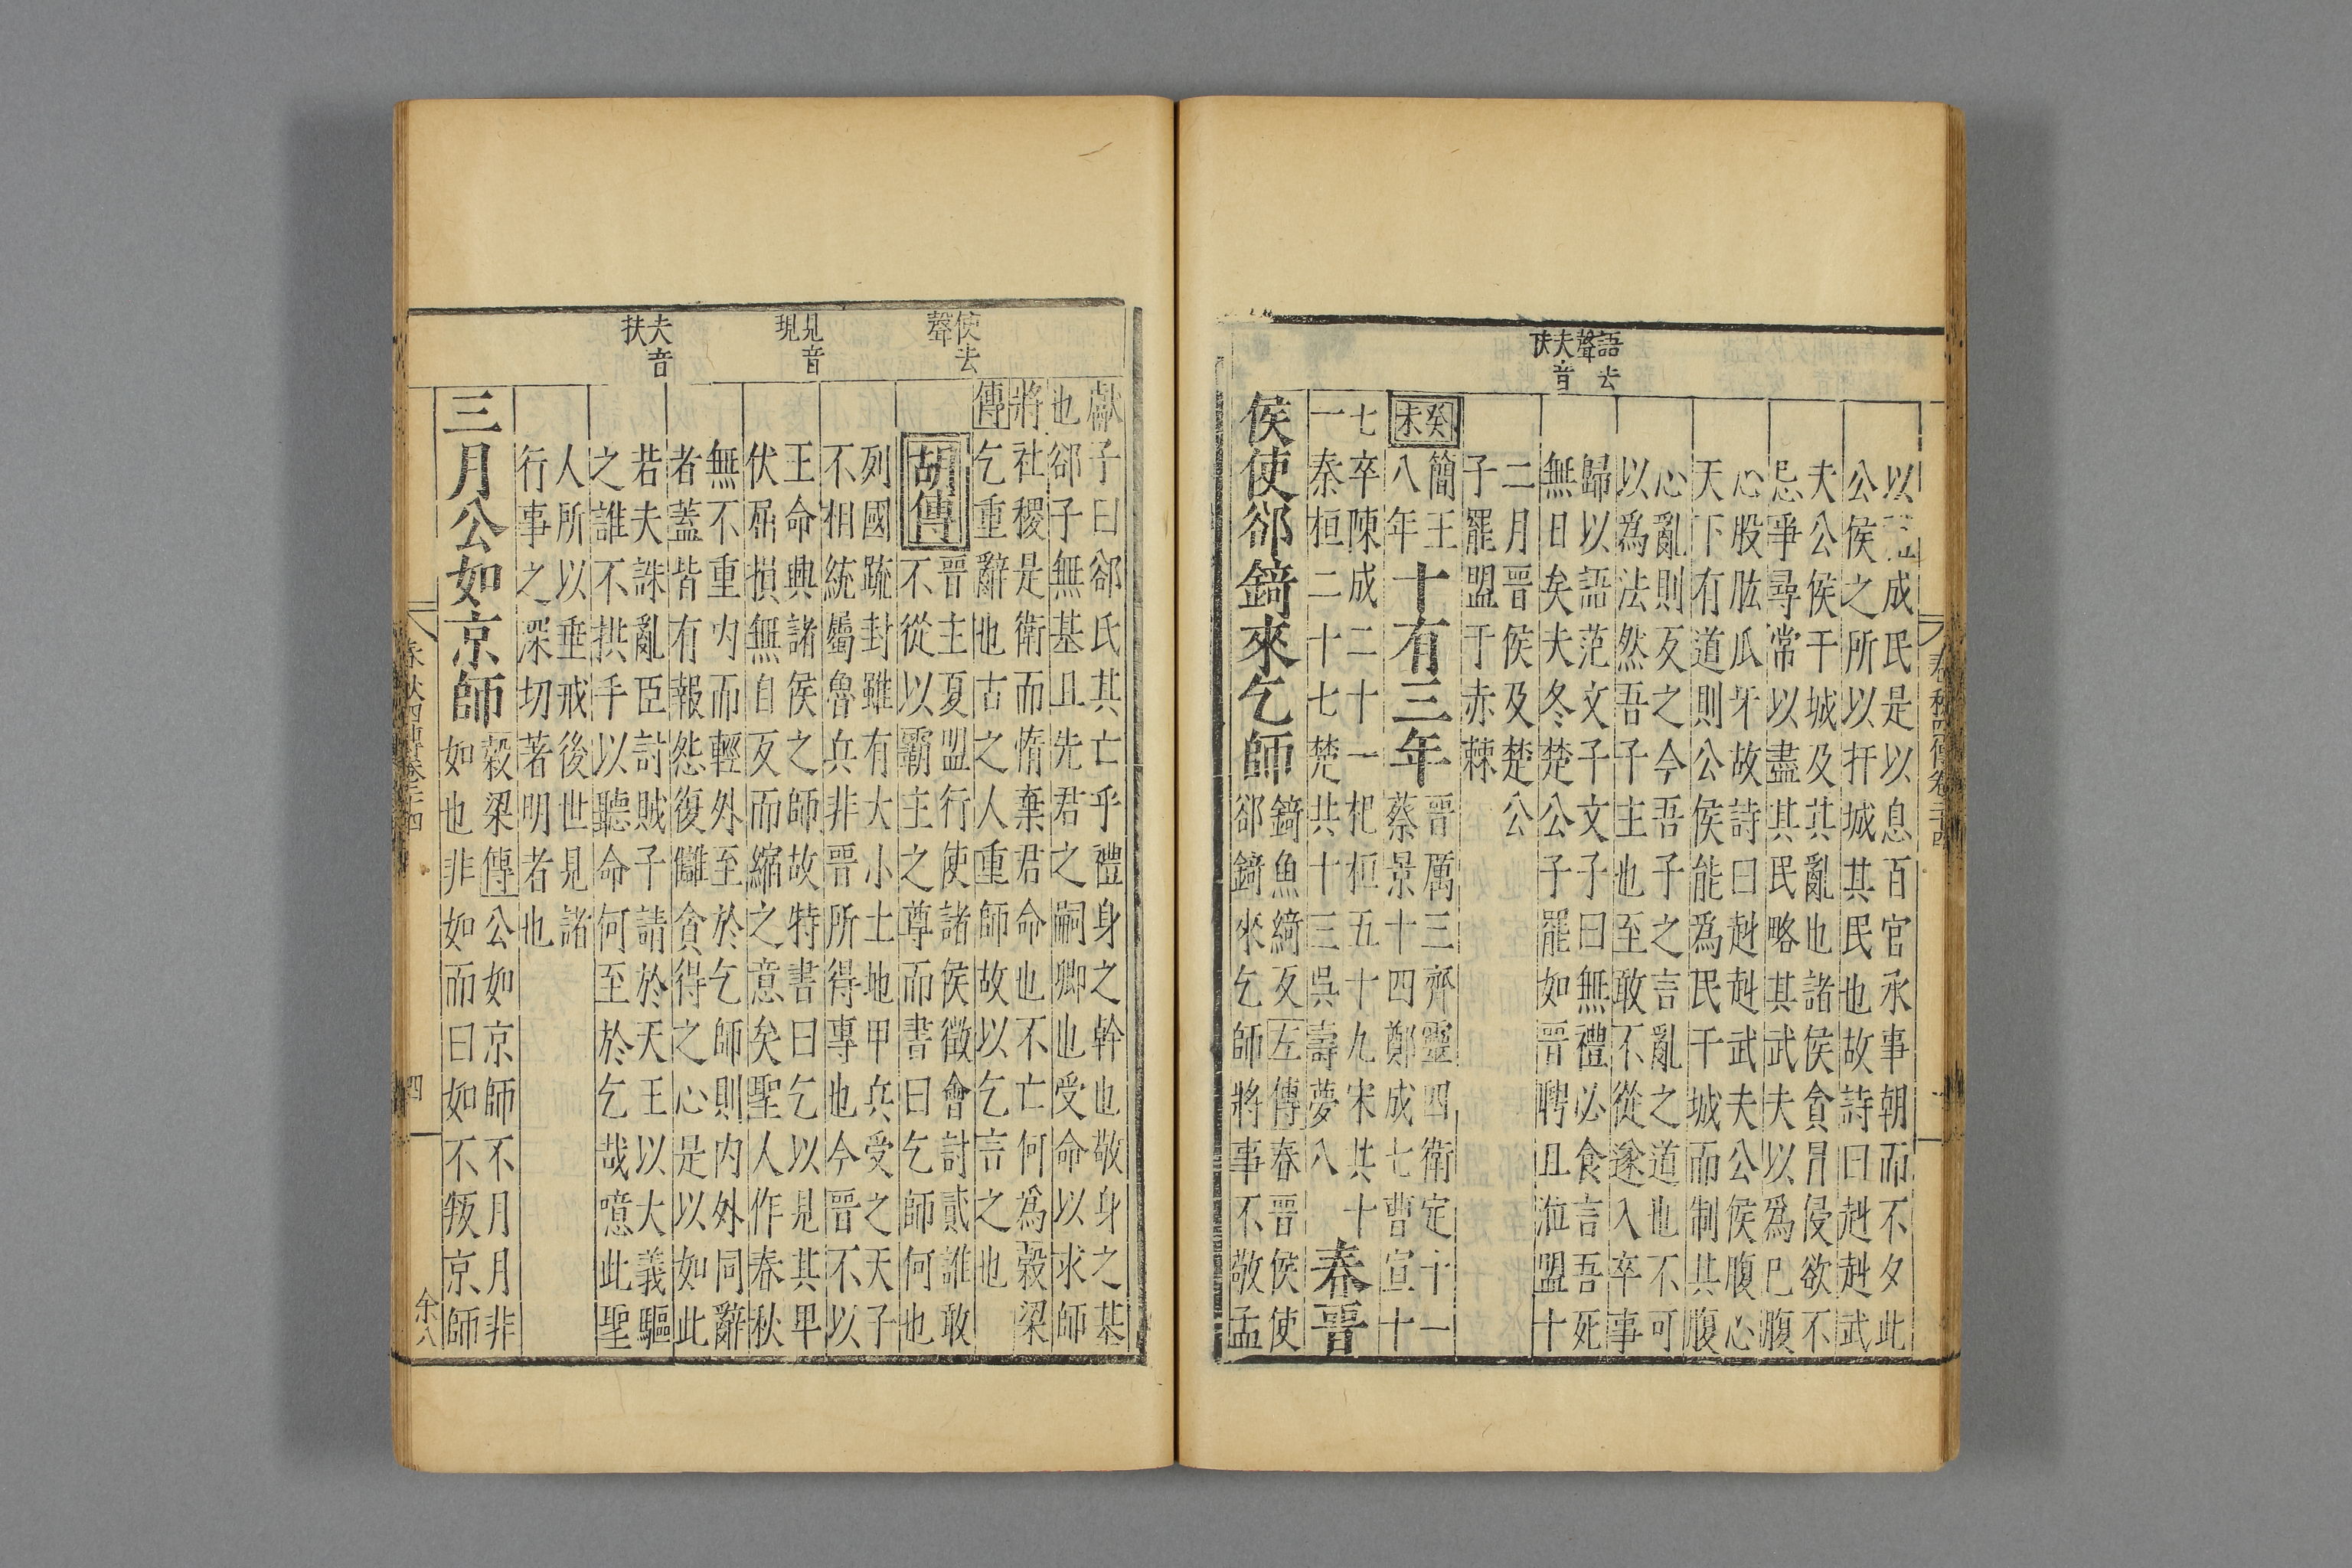 語去
聲夫音
扶
以成民是以息百官承事朝而不夕此
公侯之所以扞城其民也故詩曰赳赳武
夫公侯干城及其亂也諸侯貪冒侵欲不
忌爭尋常以盡其民略其武夫以爲己腹
心股肱瓜牙故詩曰赳赳武夫公侯腹心
天下有道則公侯能爲民干城而制其腹
心亂則反之今吾子之言亂之道也不可
以爲法然吾子主也至敢不從遂入卒事
歸以語范文子文子曰無禮必食言吾死
無日矣夫冬楚公子罷如晉聘且涖盟十
二月晉侯及楚公
子罷盟于赤棘
癸未
簡王
八年
十有三年
晉厲三齊靈四衛定十一
蔡景十四鄭成七曹宣十
七卒陳成二十一杞桓五十九宋共十
一秦桓二十七楚共十三吳壽夢八
春晉
侯使郤錡來乞師
錡魚綺反左傳春晉侯使
郤錡來乞師將事不敬孟
使去
聲
見音
現
夫音
扶
獻子曰郤氏其亡乎禮身之幹也敬身之基
也郤子無基且先君之嗣卿也受命以求師
將社稷是衛而惰棄君命也不亡何爲穀梁
傳乞重辭也古之人重師故以乞言之也
胡傳
晉主夏盟行使諸侯徵會討貳誰敢
不從以霸主之尊而書曰乞師何也
列國䟽封雖有大小土地甲兵受之天子
不相統屬魯兵非晉所得專也今晉不以
王命興諸侯之師故特書曰乞以見其卑
伏屈損無自反而縮之意矣聖人作春秋
無不重内而輕外至於乞師則内外同辭
者蓋皆有報怨復讎貪得之心是以如此
若夫誅亂臣討賊子請於天王以大義驅
之誰不拱手以聽命何至於乞哉噫此聖
人所以垂戒後世見諸
行事之深切著明者也
三月公如京師
穀梁傳公如京師不月月非
如也非如而曰如不叛京師
春秋四傳卷二十四
四
余八